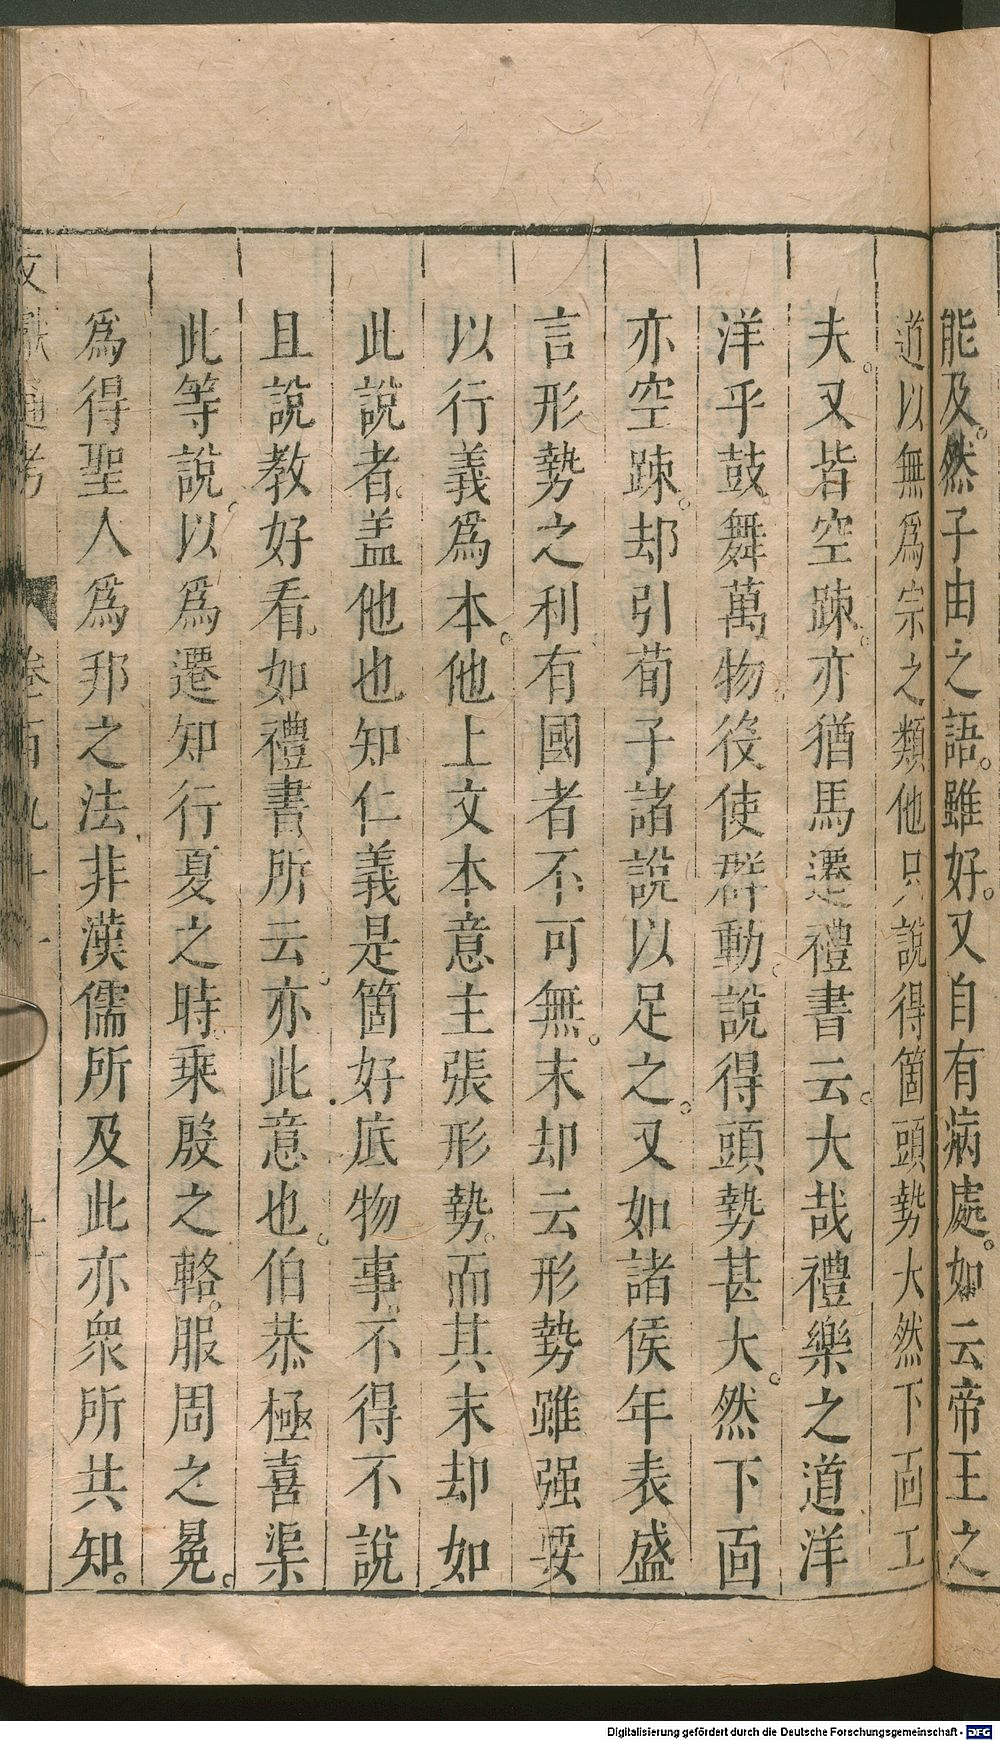 能及。然子由之語。雖好。又自有病處。如云帝王之
道以無爲宗之類他只說得箇頭勢大然下面工
夫。又皆空踈。亦猶馬遷禮書云。大哉禮樂之道洋
洋乎鼓舞萬物。役使群動。說得頭勢甚大。然下面
亦空踈。却引荀子諸說以足之。又如諸侯年表盛
言形勢之利。有國者不可無。末却云形勢雖强要
以行義爲本。他上文本意主張形勢。而其末却如
此說者。盖他也知仁義是箇好底物事。不得不說
且說教好看。如禮書所云。亦此意也。伯恭極喜渠
此等說。以爲遷知行夏之時。乗殷之輅。服周之冕。
爲得聖人爲邦之法。非漢儒所及此亦衆所共知。
文獻通考 卷百九十一
Digitalisierung gefördert durch die Deutsche Forschungsgemeinschaft - DFG